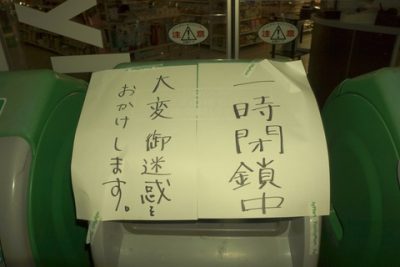 一時閉鎖中
大変御迷惑を
おかけします。
注意
注意